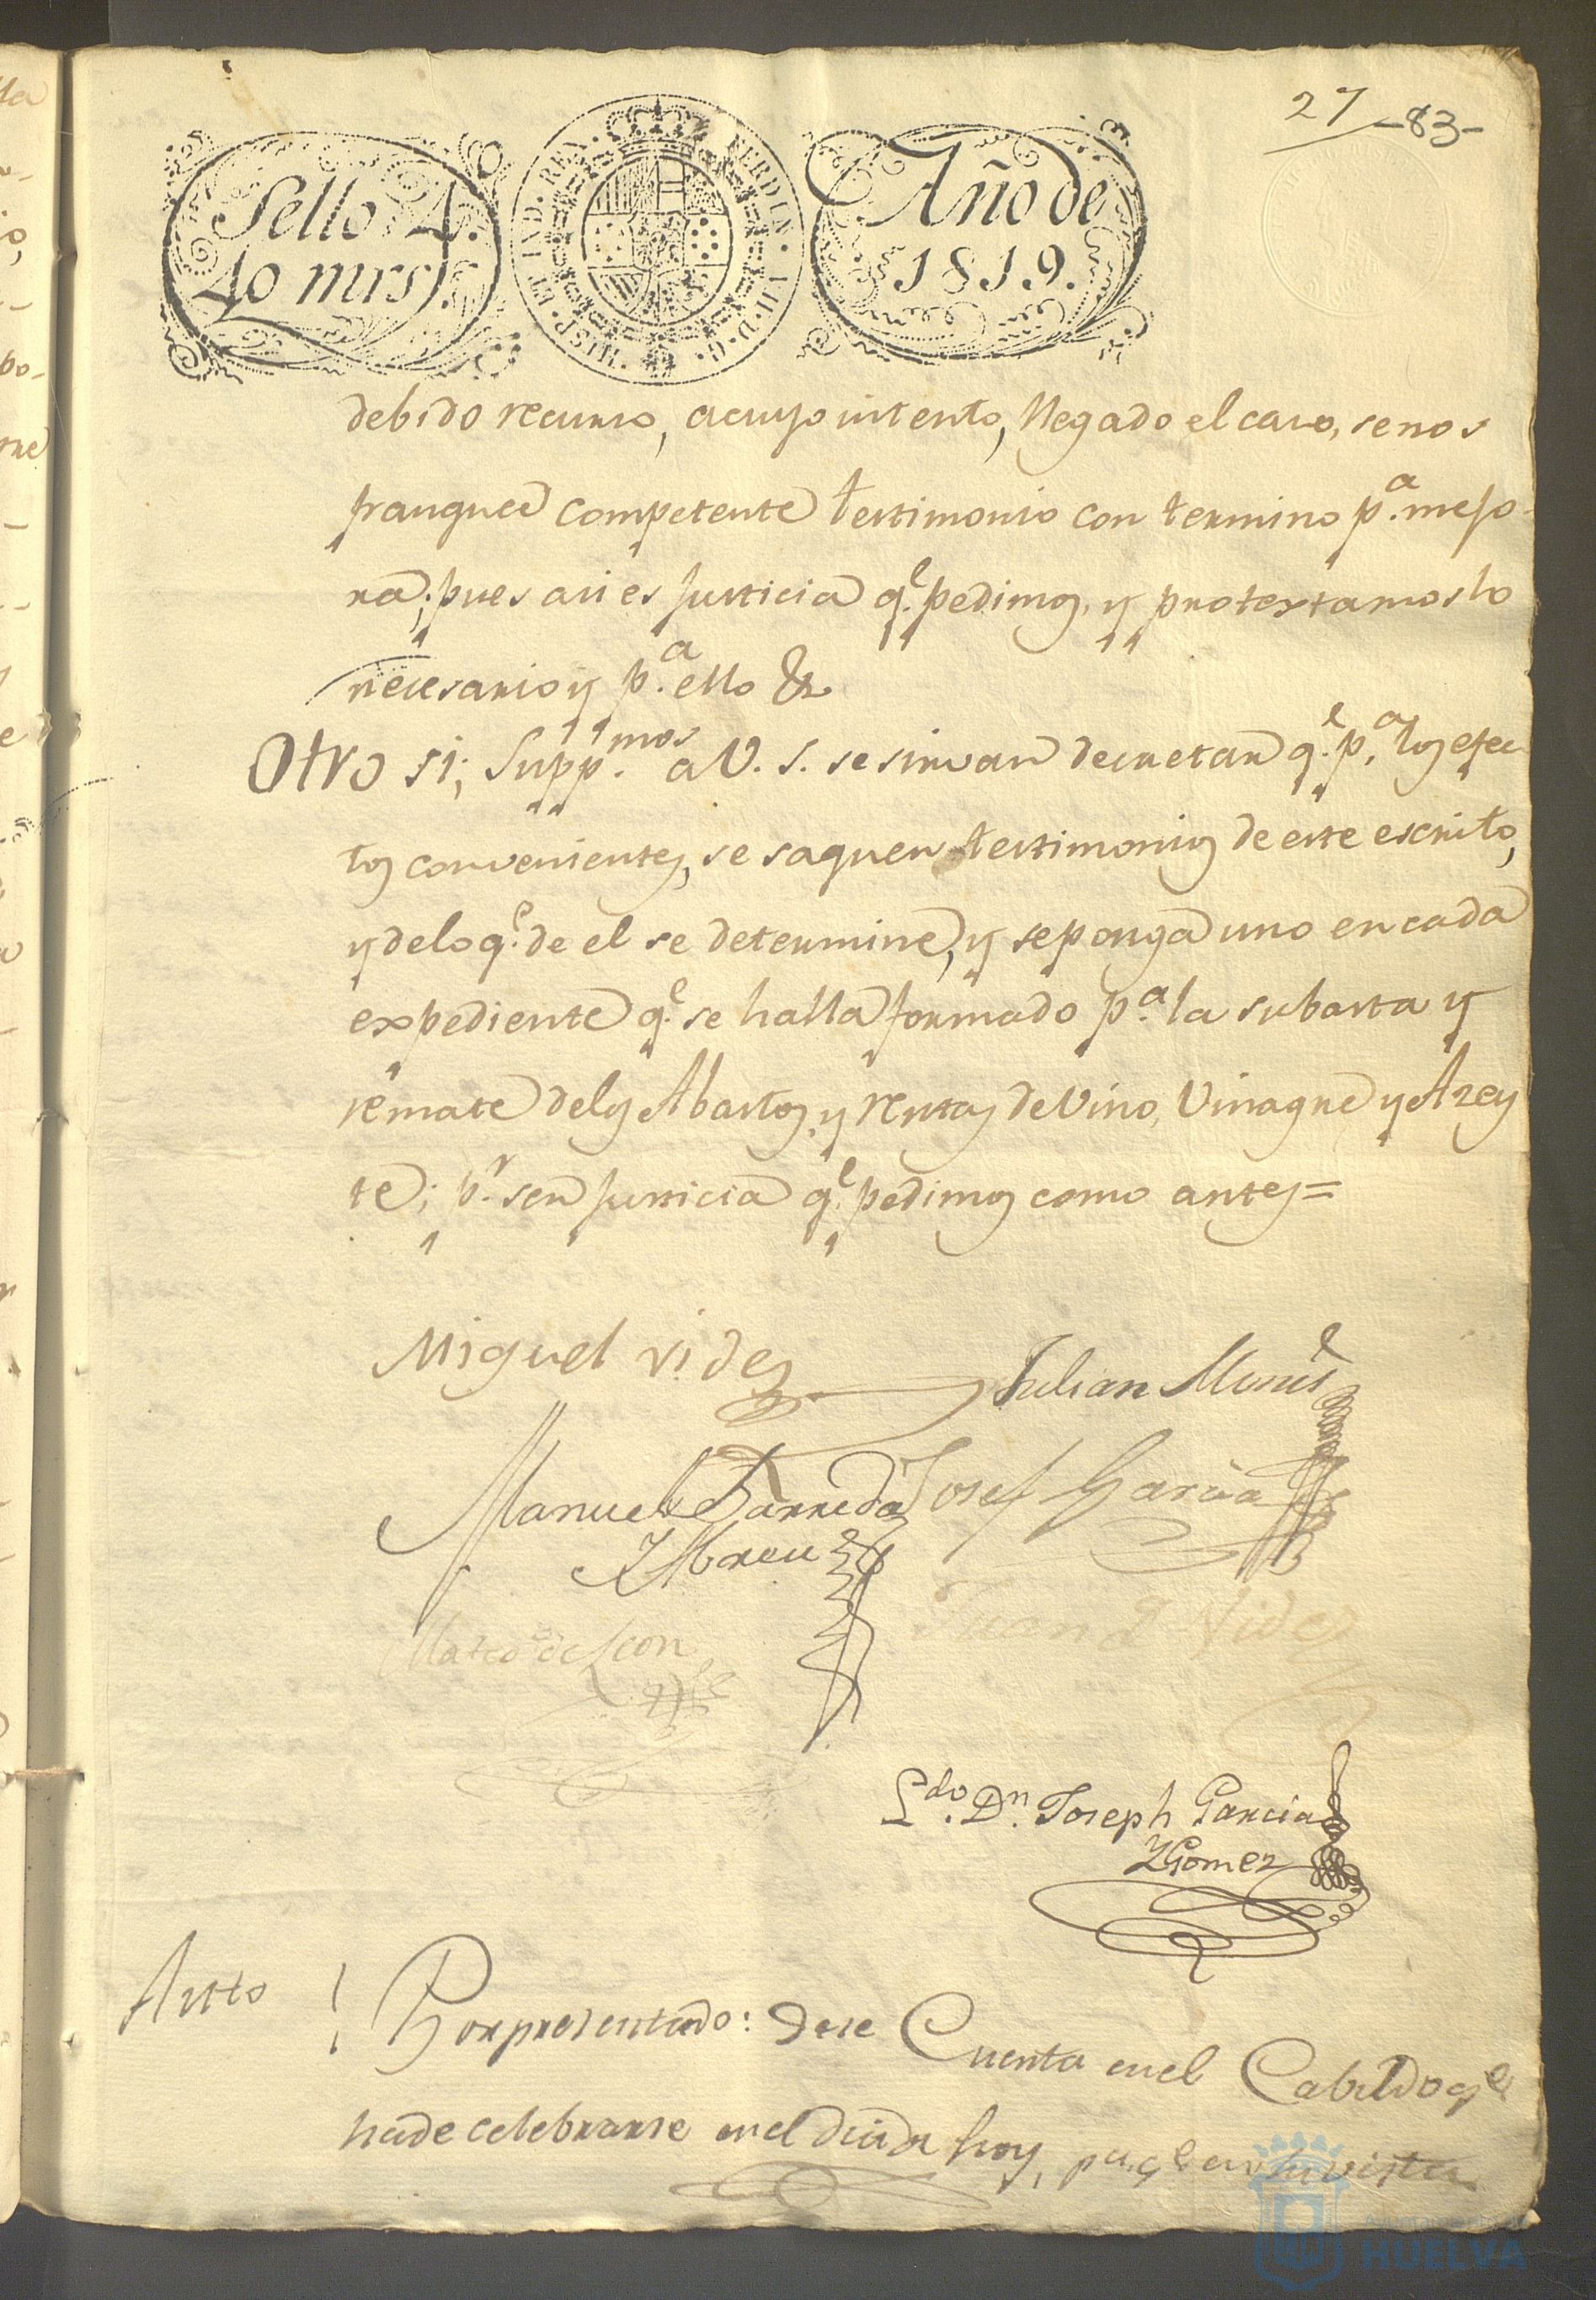 27 -83-
Sello 4.
40 mrs.
HISP. ET IND. REX. FERDIN. VII. D. G.
Año de
1819.
debido recurso, a cuyo intento, llegado el caso, se nos
franquee competente testimonio con termino p.a mejo
ra; pues asi es Justicia q.e pedimos, y protextamos lo
necesario y p.a ello &
Otro si; Supp.mos a V. S. se sirvan decretar q.e p.a los efec
tos convenientes, se saquen testimonios de este escrito,
y de lo q.e de el se determine, y se ponga uno en cada
expediente q.e se halla formado p.a la subasta y
remate de los Abastos, y rentas de Vino, Vinagre y Azey
te; p.r ser Justicia q.e pedimos como antes=
Miguel Vides
Julian
Manuel Barreda Josef Garcia
Y Abreu
Mateo de Leon Juan J. Vides
L.do D.n Joseph Garcia
Y Gomez
Auto Por presentado: Dese Cuenta en el Cabildo q.e
ha de celebrarse en el dia de hoy, pa. q.e en su vista
Ayuntamiento de
HUELVA